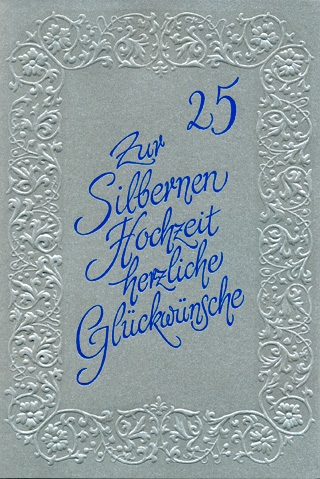 25
Zur
Silbernen
Hochzeit
herzliche
Glückwünsche